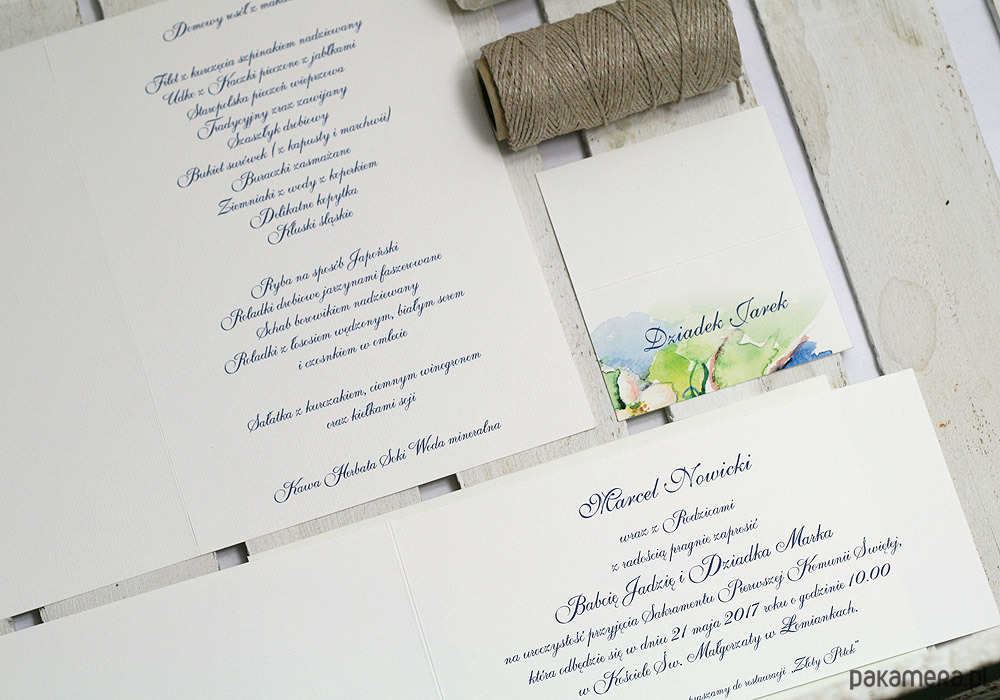 Domowy rosół z
Filet z kurczęcia szpinakiem nadziewany
Udko z Kaczki pieczone z jabłkami
Staropolska pieczeń wieprzowa
Tradycyjny zraz zawijany
Szaszłyk drobiowy
Bukiet surówek ( z kapusty i marchwii)
Buraczki zasmażane
Ziemniaki z wody z koperkiem
Delikatne kopytka
Kluski śląskie
Ryba na sposób Japoński
Roladki drobiowe jarzynami faszerowane
Schab borowikiem nadziewany
Roladki z łososiem wędzonym, białym serem
i czosnkiem w omlecie
Sałatka z kurczakiem, ciemnym winogronem
oraz kiełkami soji
Kawa Herbata Soki Woda mineralna
Dziadek Jarek
Marcel Nowicki
wraz z Rodzicami
z radością pragnie zaprosić
Babcię Jadzię i Dziadka Marka
na uroczystość przyjęcia Sakramentu Pierwszej Komunii Świętej,
która odbędzie się w dniu 21 maja 2017 roku o godzinie 10.00
w Kościele Św. Małgorzaty w Łomiankach.
praszamy do restauracji „Złoty Potok”
pakamera.pl